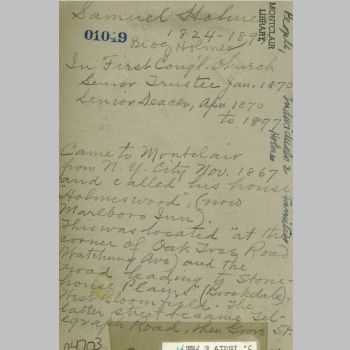 Samuel Holmes
1824-189
01049
Biog Holmes
MONTCLAIR
LIBRARY
People, Individuals & Families
Holmes
In First Cong'l. Church
Senior Trustee Jan. 1870
Senior Deacon, Apr. 1870
to 1897
Came to Montclair
from N.Y. City Nov. 1867
and called his house
"Holmeswood", (now
Marlboro Inn).
This was located "at the
corner of Oak Tree Road
(Watchung Ave) and the
road leading to Stone-
house Plains" (Brookdale),
West Bloomfield. The
latter street became Tel-
egraph Road, then Grove St.
04703